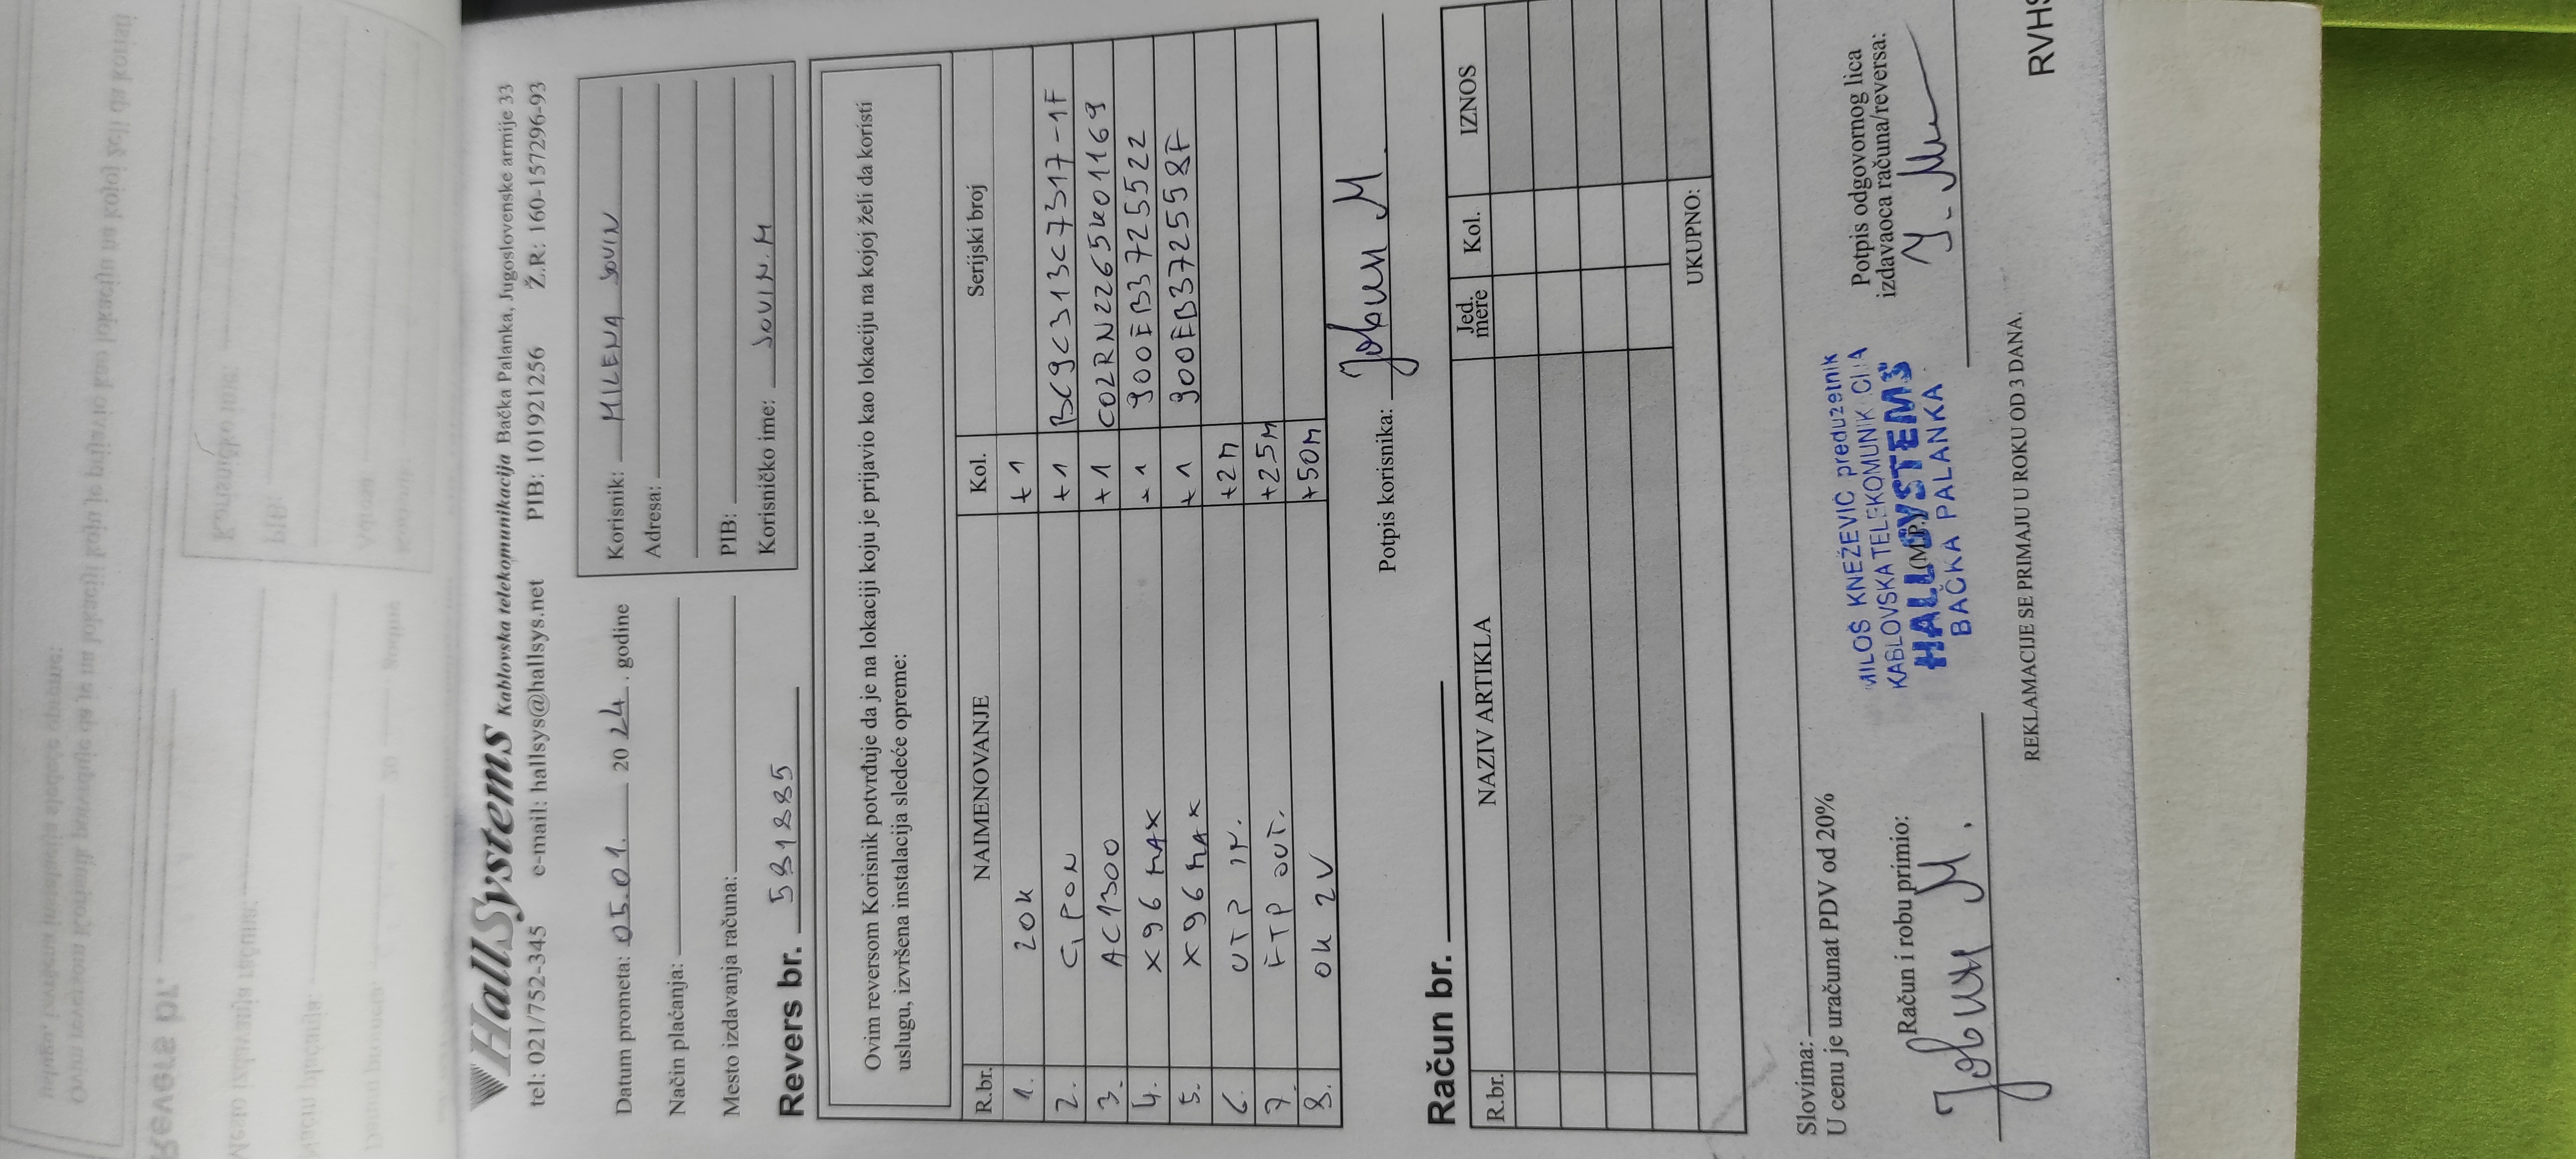 HallSystems Kablovska telekomunikacija Bačka Palanka, Jugoslovenske armije 33
tel: 021/752-345 e-mail: hallsys@hallsys.net PIB: 101921256 Ž.R: 160-157296-93
Datum prometa: 05.01. 2024. godine
Način plaćanja:
Mesto izdavanja računa:
Korisnik: MILENA JOVIN
Adresa:
PIB:
Korisničko ime: JOVIN.M
Revers br. 581885
Ovim reversom Korisnik potvrđuje da je na lokaciji koju je prijavio kao lokaciju na kojoj želi da koristi
uslugu, izvršena instalacija sledeće opreme:
R.br. NAIMENOVANJE Kol. Serijski broj
1. ZOK +1
2. GPON +1 BC9C313C7317-1F
3. AC1300 +1 C02RN2265K01169
4. X96 MAX +1 900EB3725522
5. X96 MAX +1 900EB372558F
6. UTP IN. +2M
7. FTP OUT. +25M
8. OK 2V +50M
Potpis korisnika: Јовин М.
Račun br.
R.br. NAZIV ARTIKLA Jed. mere Kol. IZNOS
UKUPNO:
Slovima:
U cenu je uračunat PDV od 20%
Račun i robu primio:
Јовин М.
MILOŠ KNEŽEVIĆ preduzetnik
KABLOVSKA TELEKOMUNIKACIJA
(M.P.)
HALL SYSTEMS
BAČKA PALANKA
Potpis odgovornog lica
izdavaoca računa/reversa:
REKLAMACIJE SE PRIMAJU U ROKU OD 3 DANA.
RVHS
Revers br.